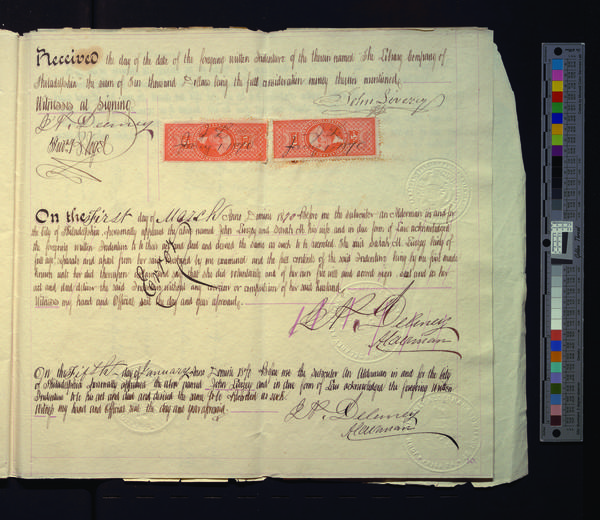 Received the day of the date of the foregoing written Indenture of the therein named The Library Company of
Philadelphia the sum of Ten thousand Dollars being the full consideration money therein mentioned
Witness at Signing
John Livezey
B. P. Delany
On the First day of March Anno Domini 1870 Before me the subscriber an Alderman in and for
the City of Philadelphia personally appeared the above named John Livezey and Sarah M. his wife and in due form of Law acknowledged
the foregoing written Indenture to be their act and deed and desired the same as such to be recorded. The said Sarah M. Livezey being of
full age separate and apart from her said husband by me examined and the full contents of the said Indenture being by me first made
known unto her did thereupon declare and say that she did voluntarily and of her own free will and accord sign seal and as her
act and deed deliver the said Indenture without any coercion or compulsion of her said husband
Witness my hand and Official seal the day and year aforesaid
Error
Alderman
On the Fifth day of January Anno Domini 187 Before me the subscriber An Alderman in and for the City
of Philadelphia personally appeared the above named John Livezey and in due form of Law acknowledged the foregoing Written
Indenture to be his act and deed and desired the same to be recorded as such
Witness my hand and Official seal the day and year aforesaid
Alderman